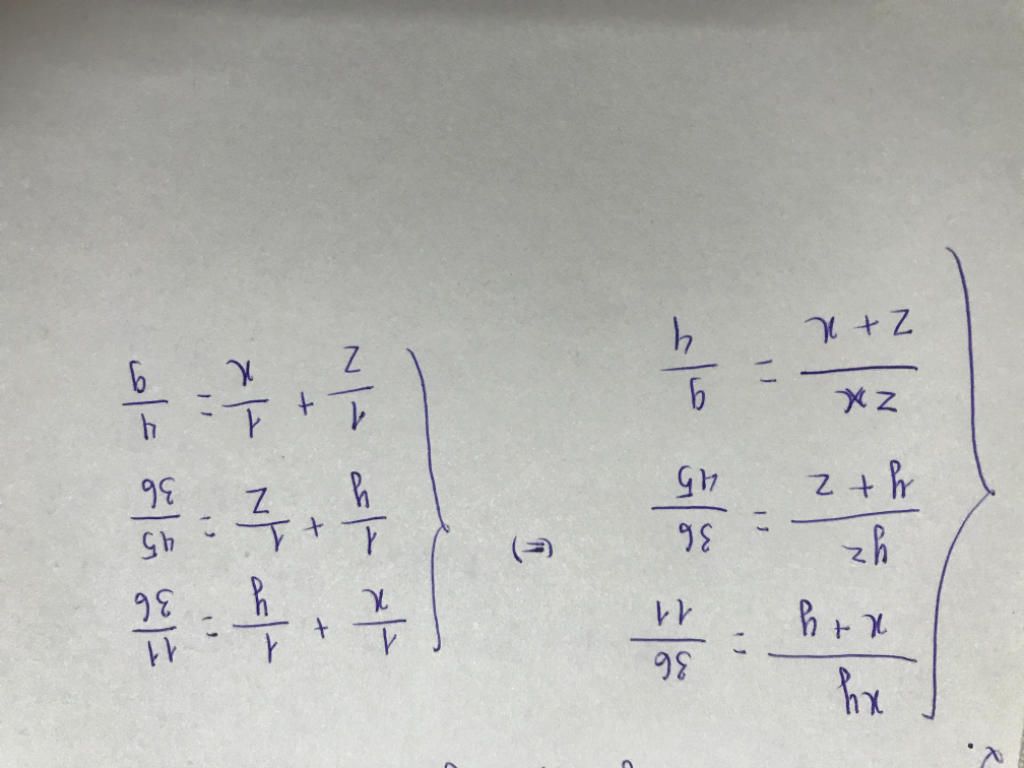 xy/(x + y) = 36/11
yz/(y + z) = 36/45
zx/(z + x) = 9/4
(=)
1/x + 1/y = 11/36
1/y + 1/z = 45/36
1/z + 1/x = 4/9